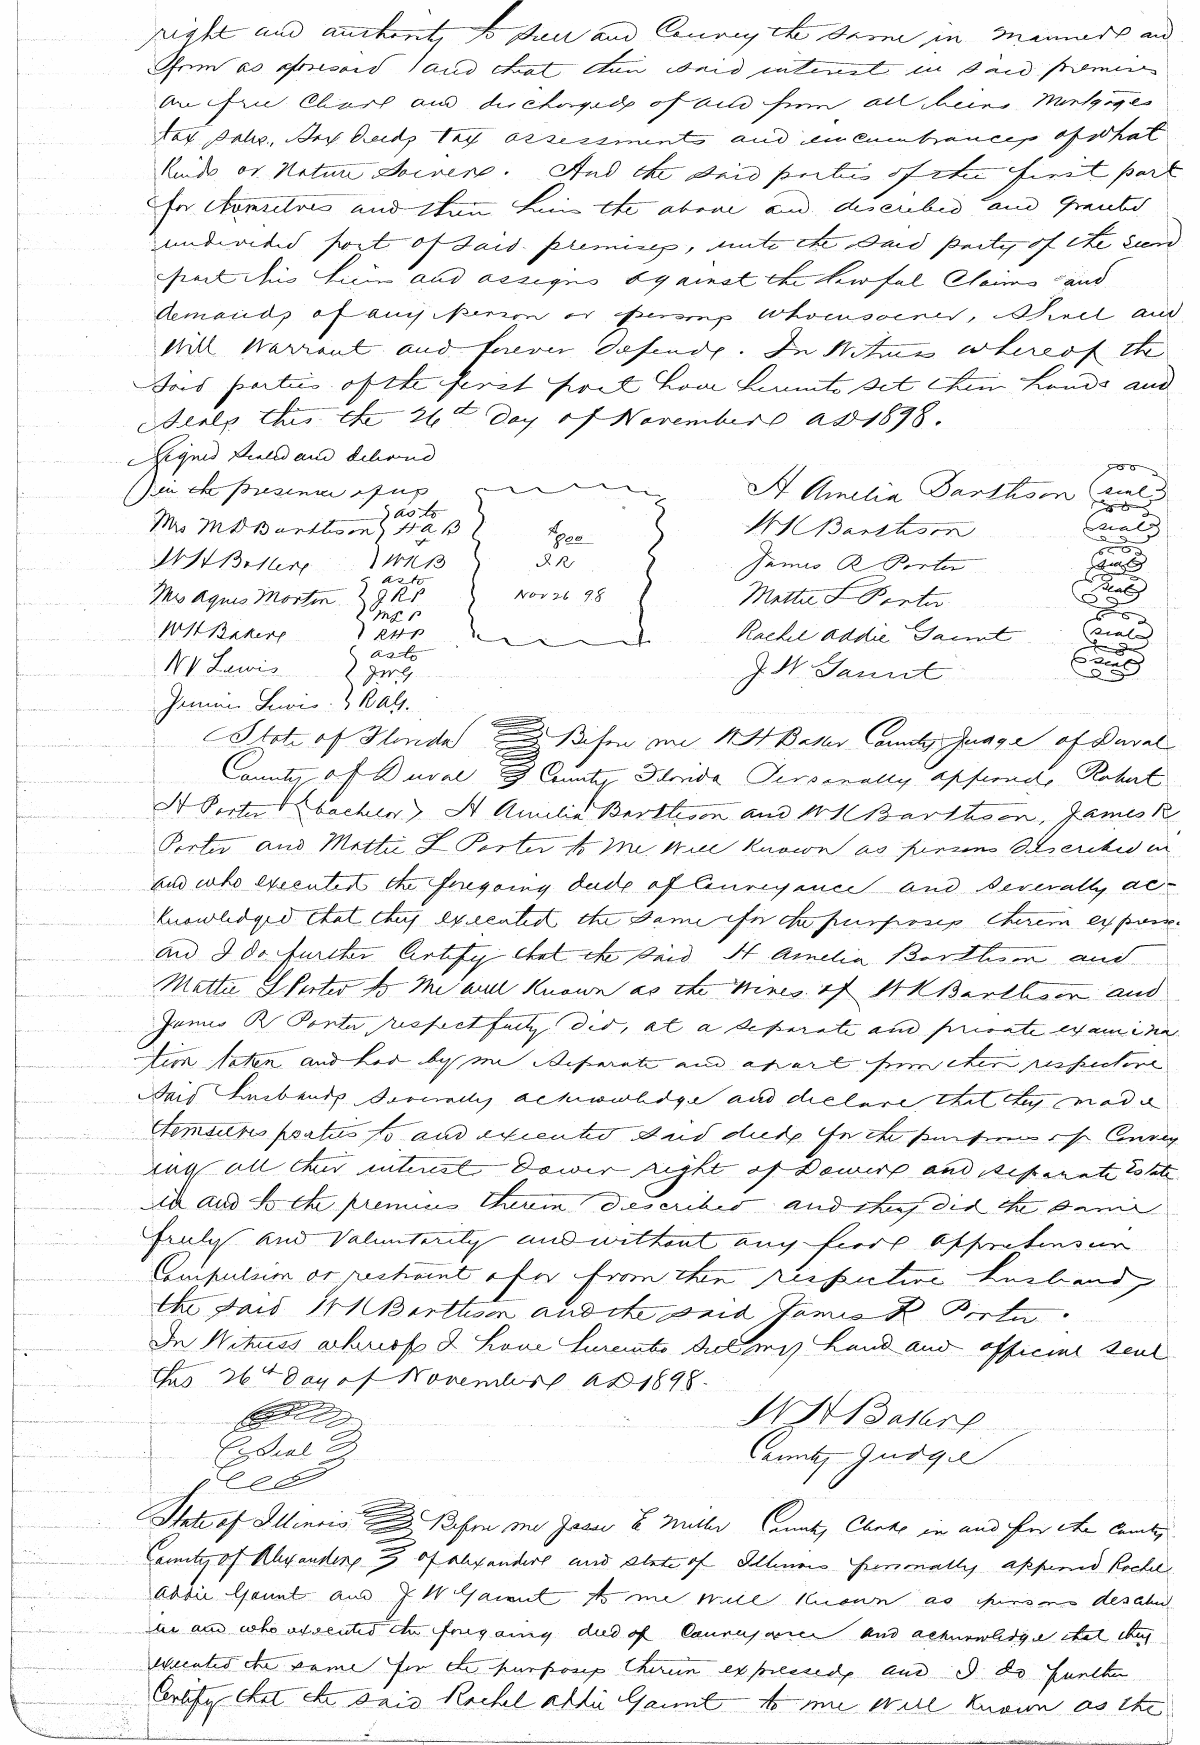 right and authority to sell and Convey the same in manner and
form as aforesaid and that their said interest in said premises
are free Clear and discharged of and from all leins Mortgages
tax sales, tax deeds tax assessments and incumbrances of what
Kind or Nature Soever. And the said parties of the first part
for themselves and their heirs the above and described and granted
undivided part of said premises, unto the said party of the second
part his heirs and assigns against the lawful Claims and
demands of any person or persons whomsoever, Shall and
Will Warrant and forever Defend. In Witness whereof the
Said parties of the first part have hereunto set their hands and
Seals this the 26th Day of November AD 1898.
Signed Sealed and delivered
in the presence of us
H Amelia Barthson (seal)
Mrs M D Barthson } as to H A B
$800
W K Barthson (seal)
W H Baker } W K B
I.R
James R Porter (seal)
Mrs Agnes Morton } as to J R P
Nov 26 98
Mattie L Porter (seal)
M L P
W H Baker } R H P
Rachel Addie Gaunt (seal)
N V Lewis } as to J W G
J. W Gaunt (seal)
Jennie Lewis } R A G.
State of Florida Before me W H Baker County Judge of Duval
County of Duval County Florida Personally appeared Robert
H Porter (bachelor) H Amelia Barthson and W K Barthson, James R
Porter and Mattie L Porter to Me Well Known as persons Described in
and who executed the foregoing deed of Conveyance and severally ac-
knowledged that they executed the same for the purposes therein express.
and I do further Certify that the said H Amelia Barthson and
Mattie L Porter to Me well Known as the Wives of W K Barthson and
James R Porter, respectfuly did, at a separate and private examina
tion taken and had by me Separate and apart from their respective
said husbands severally acknowledge and declare that they made
themselves parties to and executed said deed for the purposes of Convey
ing all their interest Dower right of Dower and separate Estate
in and to the premises therein described and they did the same
freely and Voluntarily and without any fear apprehension
Compulsion or restraint of or from their respective husband,
the said W K Barthson and the said James R Porter.
In Witness whereof I have hereunto set my hand and official seal
this 26th Day of November AD 1898.
W H Baker
Seal
County Judge
State of Illinois Before me Jesse E Miller County Clerk in and for the County
County of Alexander of Alexander and state of Illinois personally appeared Rachel
Addie Gaunt and J W Gaunt to me Well Known as persons described
in and who executed the foregoing deed of Conveyance and acknowledge that they
executed the same for the purposes therein expressed and I do further
Certify that the said Rachel Addie Gaunt to me Well Known as the